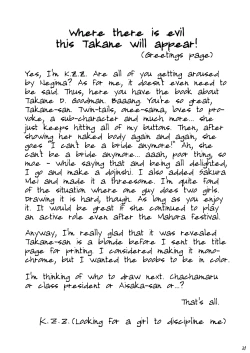 Where there is evil
this Takane will appear!
(Greetings page)
Yes, I'm K.Z.Z. Are all of you getting aroused
by Negima? As for me, it doesn't even need to
be said. Thus, here you have the book about
Takane D. Goodman. Baaang. You're so great,
Takane-san. Twin-tails, onee-sama, loves to pro-
voke, a sub-character and much more... she
just keeps hitting all of my buttons. Then, after
showing her naked body again and again, she
goes "I can't be a bride anymore!" Ah, she
can't be a bride anymore... aaah, poor thing, so
moe - while saying that and being all delighted,
I go and make a dojinshi. I also added Sakura
Mei and made it a threesome. I'm quite fond
of the situation where one guy does two girls.
Drawing it is hard, though. As long as you enjoy
it. It would be great if she continued to play
an active role even after the Mahora festival.
Anyway, I'm really glad that it was revealed
Takane-san is a blonde before I sent the title
page for printing. I considered making it mono-
chrome, but I wanted the boobs to be in color.
I'm thinking of who to draw next. Chachamaru
or class president or Asaka-san or...?
That's all.
K.Z.Z.(Looking for a girl to discipline me)